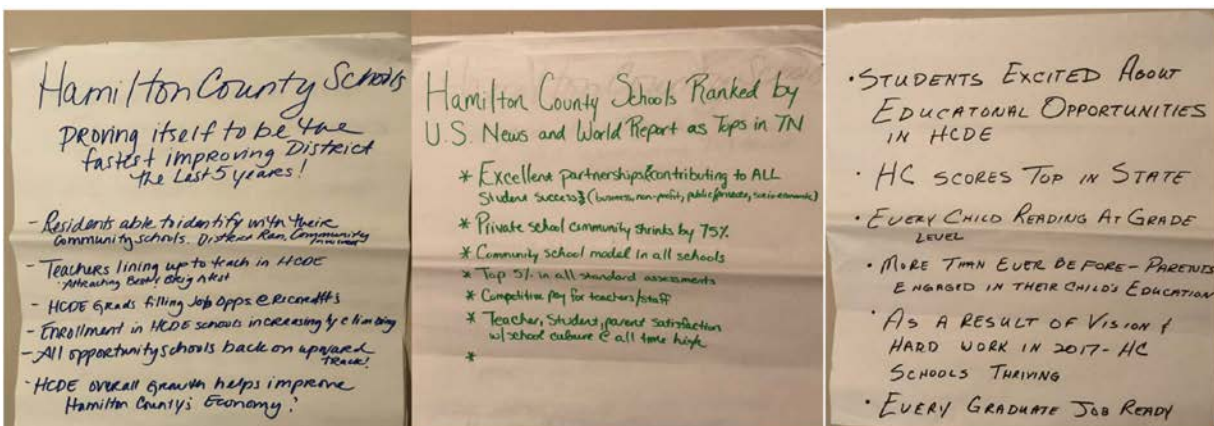 Hamilton County Schools
proving itself to be the
fastest improving District
the Last 5 years!
- Residents able to identify with their
Community schools. District Ran, Community
- Teachers lining up to teach in HCDE
• Attracting Best & Brightest
- HCDE grads filling Job Opps @
- Enrollment in HCDE schools increasingly climbing
- All opportunity schools back on upward
track!
- HCDE overall growth helps improve
Hamilton County's Economy!
Hamilton County Schools Ranked by
U.S. News and World Report as Tops in TN
* Excellent partnerships contributing to ALL
Student Success (business, non-profit, public/private, socio-economic)
* Private school community shrinks by 75%
* Community school model in all schools
* Top 5% in all standard assessments
* Competitive pay for teachers/staff
* Teacher, Student, parent satisfaction
w/school culture @ all time high
*
• STUDENTS EXCITED ABOUT
EDUCATONAL OPPORTUNITIES
IN HCDE
• HC SCORES TOP IN STATE
• EVERY CHILD READING AT GRADE
LEVEL
• MORE THAN EVER BEFORE - PARENTS
ENGAGED IN THEIR CHILD'S EDUCATION
• AS A RESULT OF VISION &
HARD WORK IN 2017 - HC
SCHOOLS THRIVING
• EVERY GRADUATE JOB READY